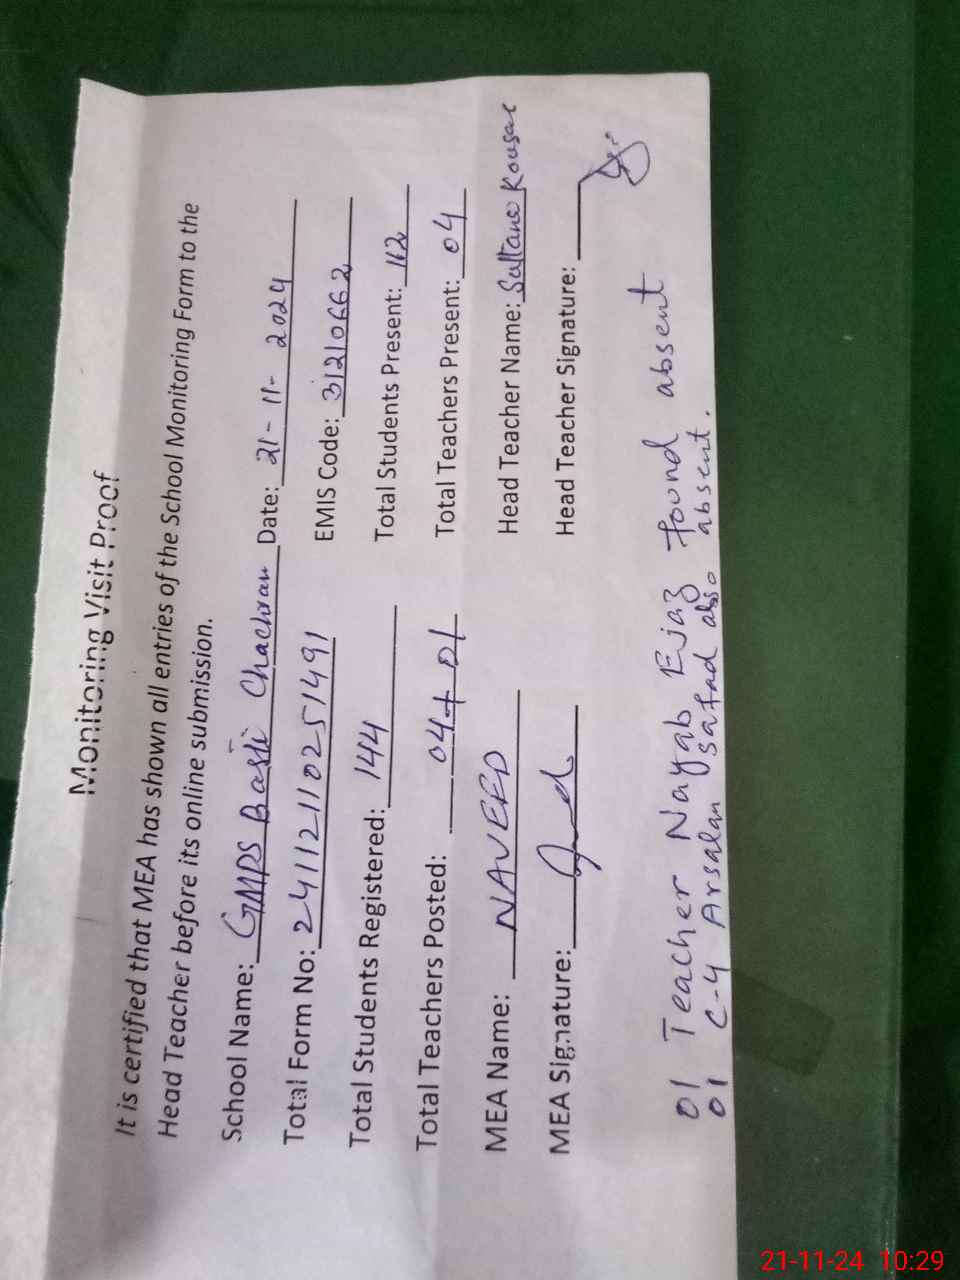 Monitoring Visit Proof
It is certified that MEA has shown all entries of the School Monitoring Form to the
Head Teacher before its online submission.
School Name: GMPS Basti Chachran Date: 21-11-2024
Total Form No: 24112110251491 EMIS Code: 31210662
Total Students Registered: 144 Total Students Present: 112
Total Teachers Posted: 04+01 Total Teachers Present: 04
MEA Name: NAVEED Head Teacher Name: Sultana Kousar
MEA Signature: Head Teacher Signature:
01 Teacher Nayab Ejaz found absent
01 C-4 Arsalan Sajjad also absent.
21-11-24 10:29